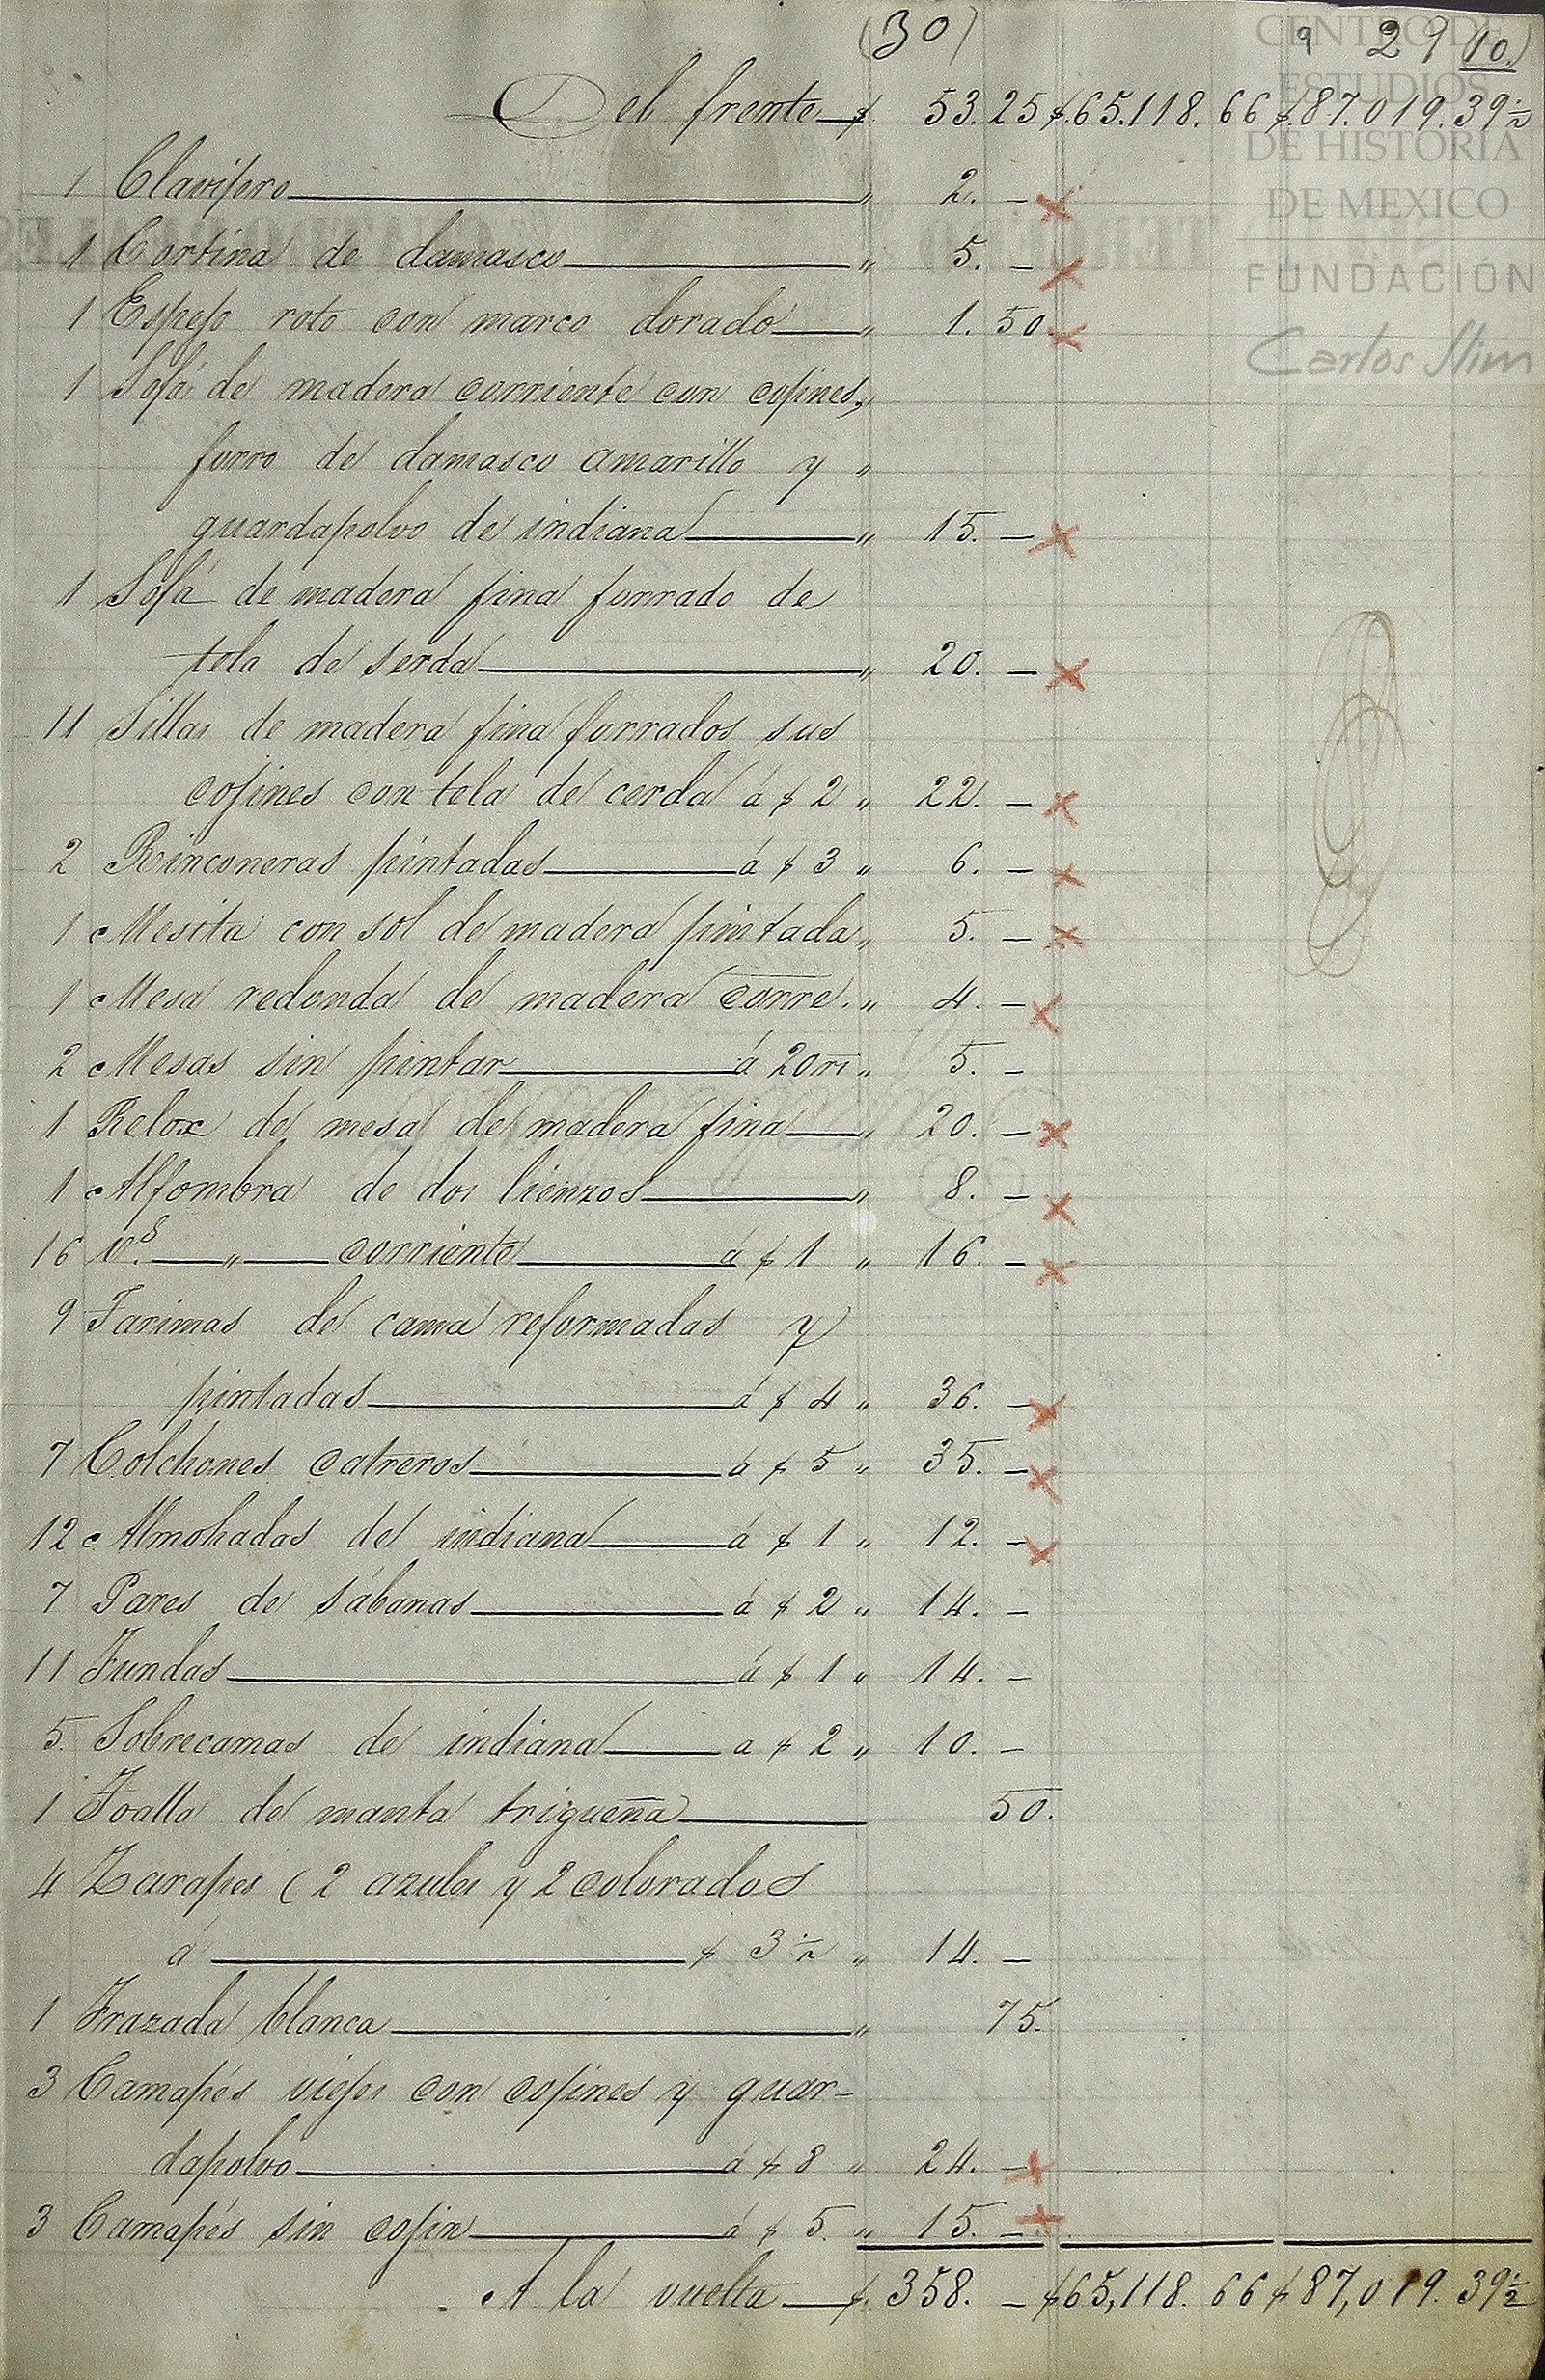 (30)
9 29 (10.)
CENTRO DE
ESTUDIOS
DE HISTORIA
DE MEXICO
FUNDACIÓN
Carlos Slim
Del frente $ 53.25 $.65.118.66 $.87.019.39½
1 Clavijero " 2. —
1 Cortina de damasco " 5. —
1 Espejo roto con marco dorado " 1.50
1 Sofá de madera corriente con cojines, "
forro de damasco amarillo y "
guardapolvo de indiana " 15. —
1 Sofá de madera fina forrado de
tela de serda " 20. —
11 Sillas de madera fina forrados sus
cojines con tela de cerda á $ 2 " 22. —
2 Rinconeras pintadas á $ 3 " 6. —
1 Mesita con sol de madera pintada " 5. —
1 Mesa redonda de madera corre. " 4. —
2 Mesas sin pintar á 20 rs " 5. —
1 Relox de mesa de madera fina " 20. —
1 Alfombra de dos lienzos " 8. —
16 vs. " corriente á $ 1 " 16. —
9 Tarimas de cama reformadas y
pintadas á $ 4 " 36. —
7 Colchones catreros á $ 5 " 35. —
12 Almohadas de indiana á $ 1 " 12. —
7 Pares de sábanas á $ 2 " 14. —
11 Fundas á $ 1 " 14. —
5. Sobrecamas de indiana a $ 2 " 10. —
1 Toalla de manta trigueña 50.
4 Zarapes (2 azules y 2 colorados
á $ 3½ " 14. —
1 Frazada blanca " 75.
3 Camapés viejos con cojines y guar-
dapolvo á $ 8 " 24. —
3 Camapés sin cojin á $ 5. " 15. —
A la vuelta $. 358. — $65,118.66 $87,019.39½